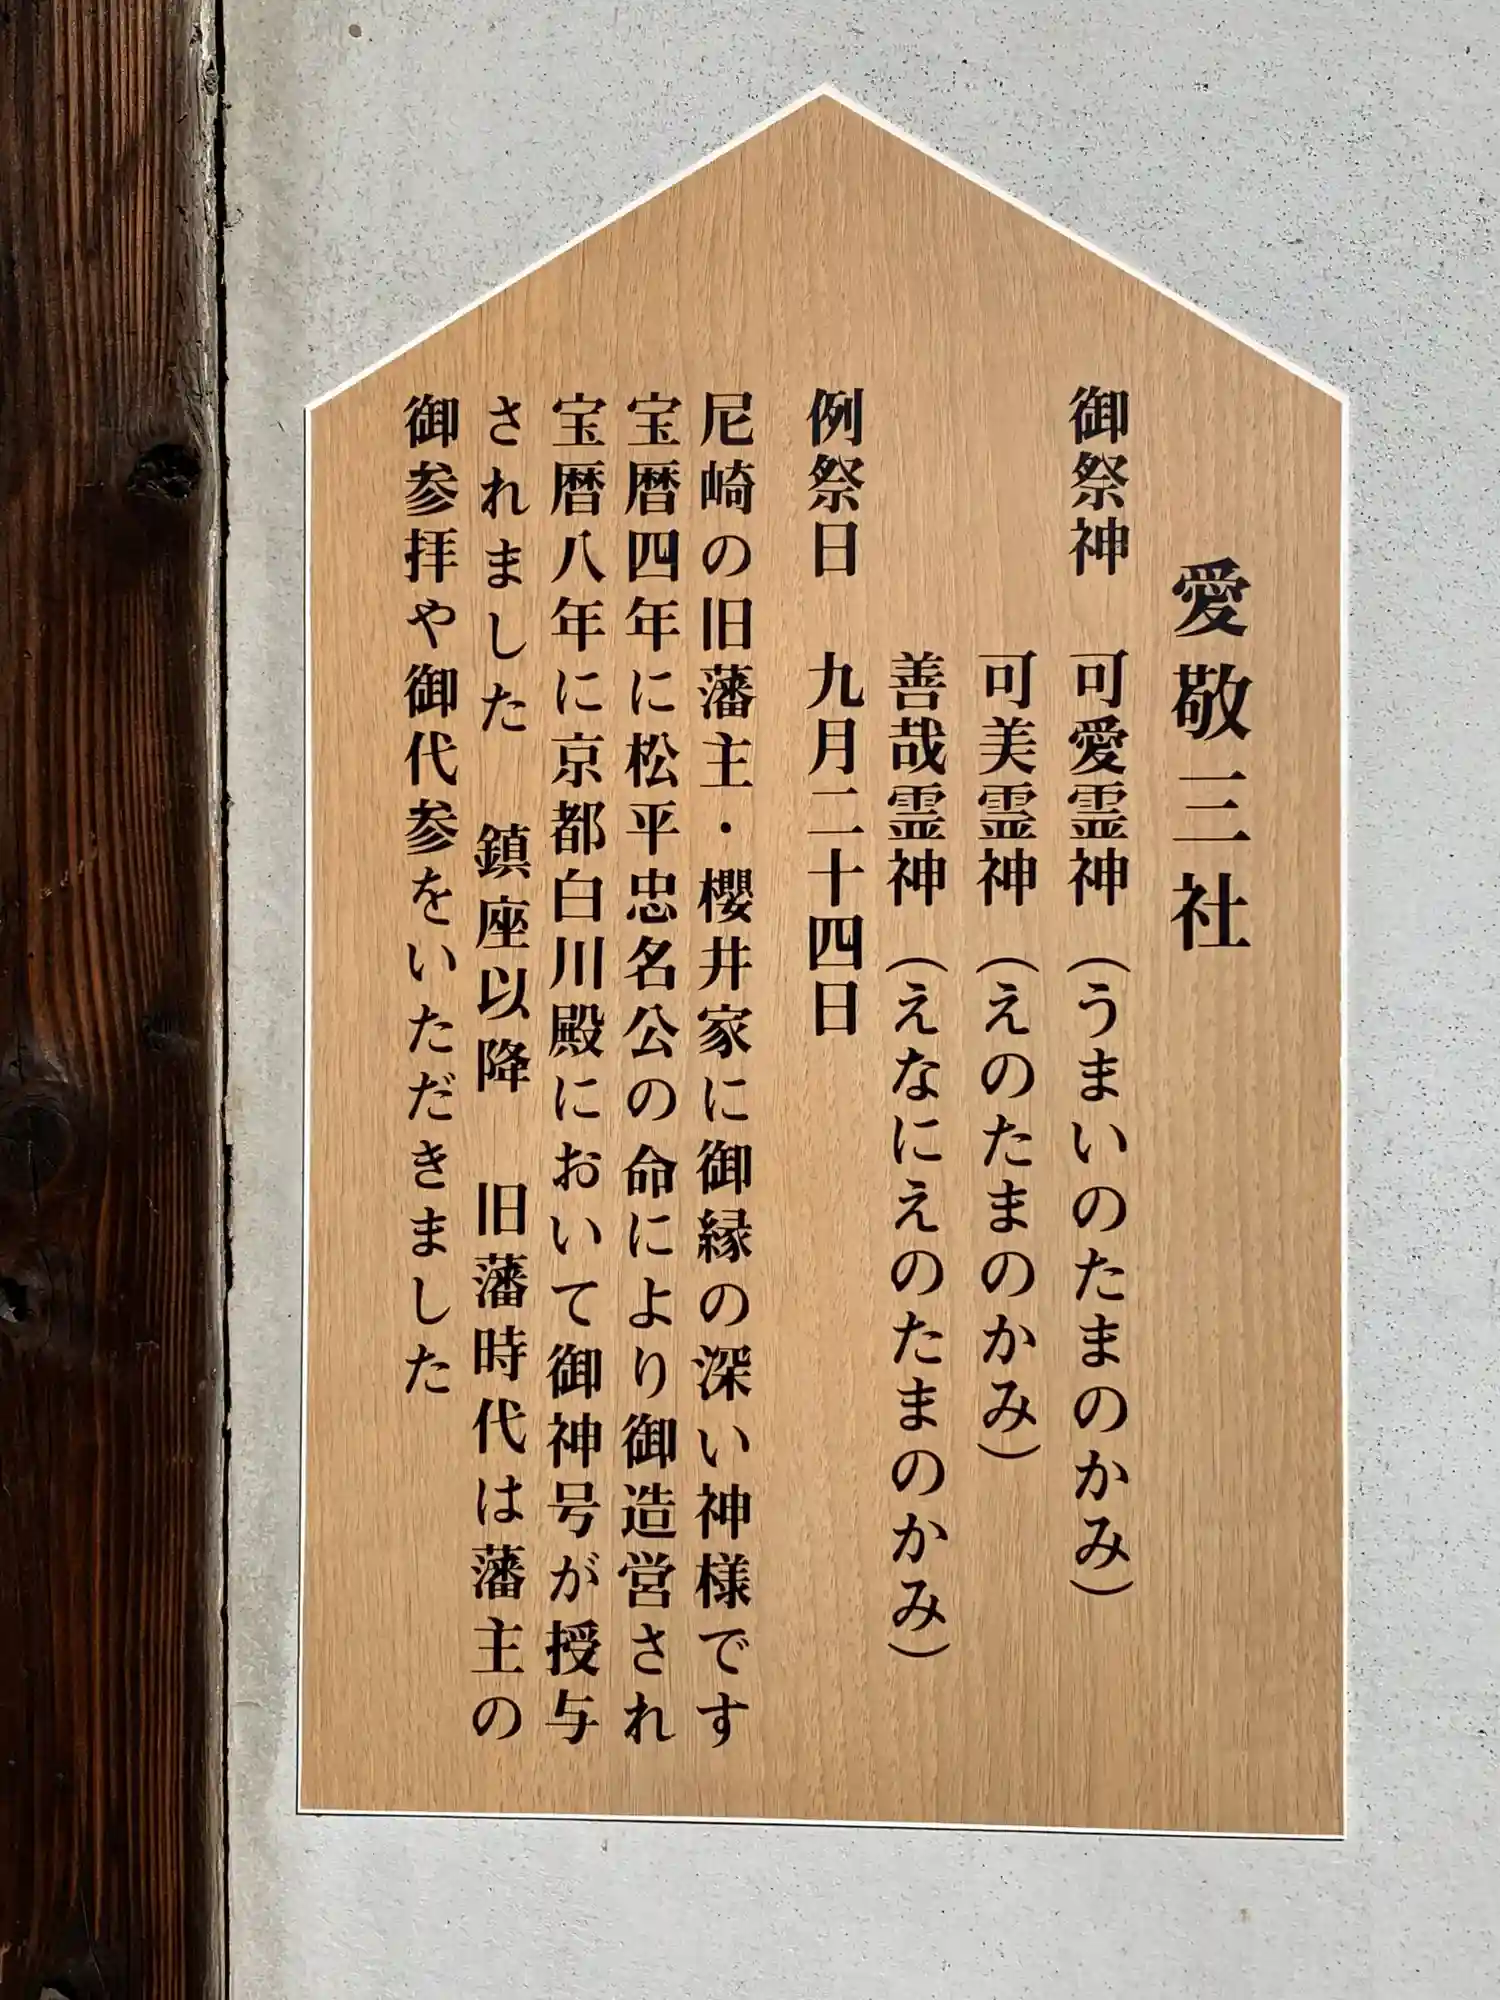 愛敬三社
御祭神　可愛霊神（うまいのたまのかみ）
可美霊神（えのたまのかみ）
善哉霊神（えなにえのたまのかみ）
例祭日　九月二十四日
尼崎の旧藩主・櫻井家に御縁の深い神様です
宝暦四年に松平忠名公の命により御造営され
宝暦八年に京都白川殿において御神号が授与
されました　鎮座以降　旧藩時代は藩主の
御参拝や御代参をいただきました